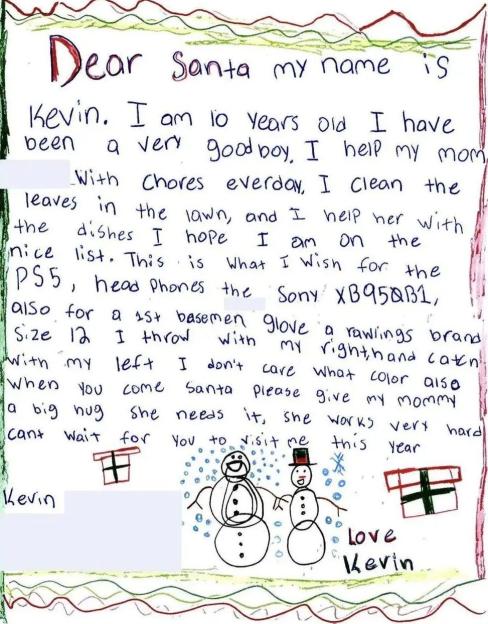 Dear Santa my name is
Kevin. I am 10 years old I have
been a very good boy. I help my mom
With Chores everday, I clean the
leaves in the lawn, and I help her with
the dishes I hope I am on the
nice list. This is what I wish for the
PS5, head phones the Sony XB950B1,
also for a 1st basemen glove a rawlings brand
Size 12 I throw with my right,hand catch
with my left I don't care what color also
when you come Santa please give my mommy
a big hug she needs it, she works very hard
cant wait for you to visit me this year
Kevin
Love
Kevin